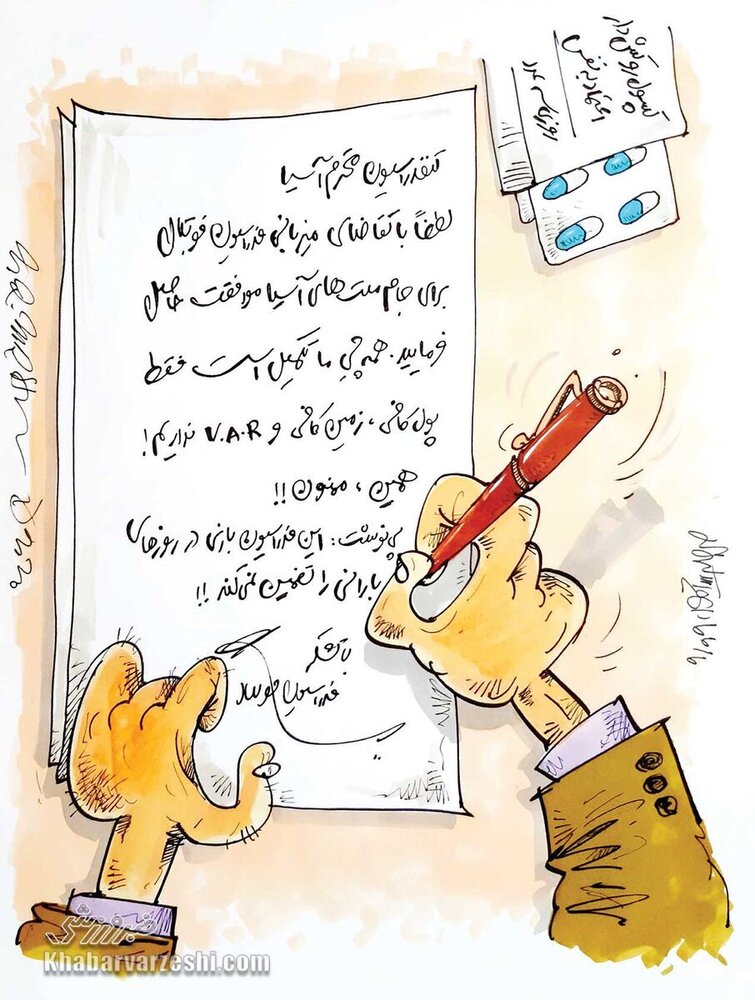 کپسول روکش دار
اعتماد به نفس
روزی عدد
کنفدراسیون محترم آسیا
لطفاً با تقاضای میزبانی فدراسیون فوتبال
برای جام ملت‌های آسیا موافقت حاصل
فرمایید. همه چی ما تکمیل است فقط
پول کافی، زمین کافی و V.A.R نداریم!
همین، ممنون!!
پی‌نوشت: این فدراسیون بازی در روزهای
بارانی را تضمین نمی‌کند!!
با تشکر
فدراسیون
2020
خبرورزشی
Khabarvarzeshi.com